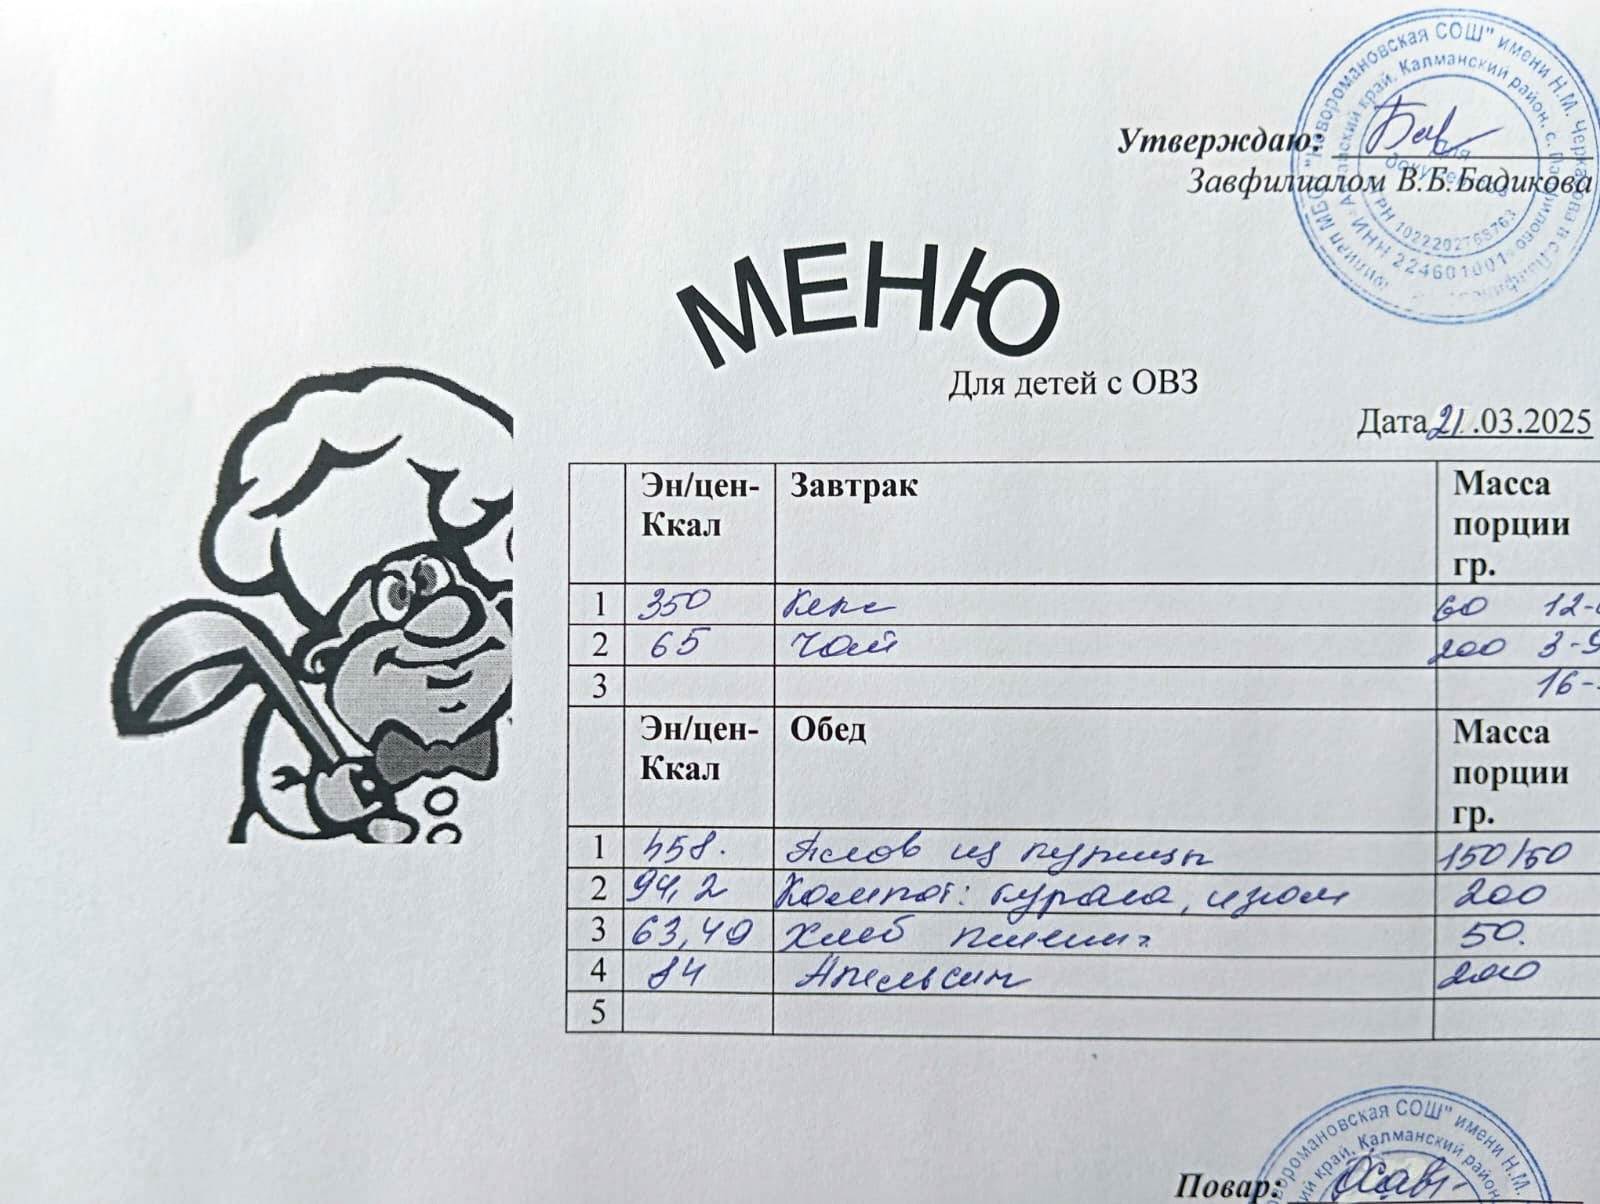 "Новоромановская СОШ" имени Н.М. Черкасова в с.
край, Калманский район, с.
ИНН 224601001
для
документов
Утверждаю:
Завфилиалом В.Б.Бадикова
МЕНЮ
Для детей с ОВЗ
Дата 21.03.2025
Эн/цен-Ккал Завтрак Масса порции гр.
1 350 Кекс 60 12-
2 65 Чай 200 3-9
3 16-
Эн/цен-Ккал Обед Масса порции гр.
1 458. Плов из курицы 150/50
2 94,2 Компот: курага, изюм 200
3 63,40 Хлеб пшенич 50.
4 84 Апельсин 200
5
Новоромановская СОШ" имени Н.М.
край, Калманский район
Повар: